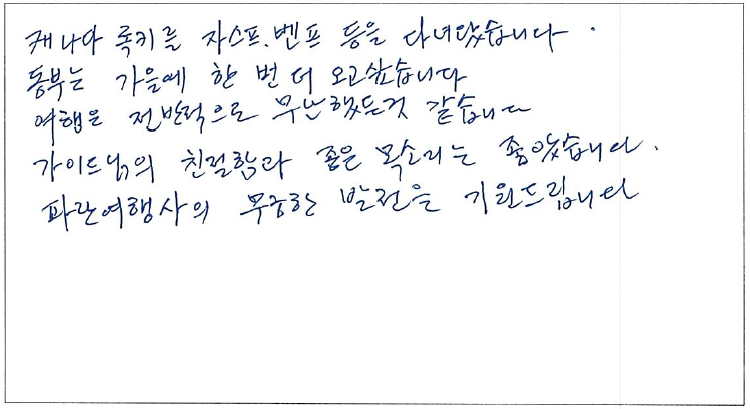 캐나다 록키를 자스프.벤프 등을 다녀왔습니다.
동부는 가을에 한 번 더 오고싶습니다
여행은 전반적으로 무난했든것 같습니다
가이드님의 친절함과 좋은 목소리는 좋았습니다.
파란여행사의 무궁한 발전을 기원드립니다